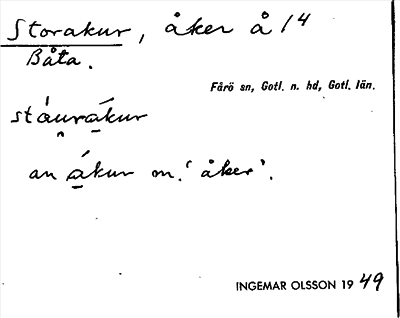 Storakur, åker å 1/4
Båta.
Fårö sn, Gotl. n. hd, Gotl. län.
stáurákur
an ákur m. 'åker'.
INGEMAR OLSSON 1949